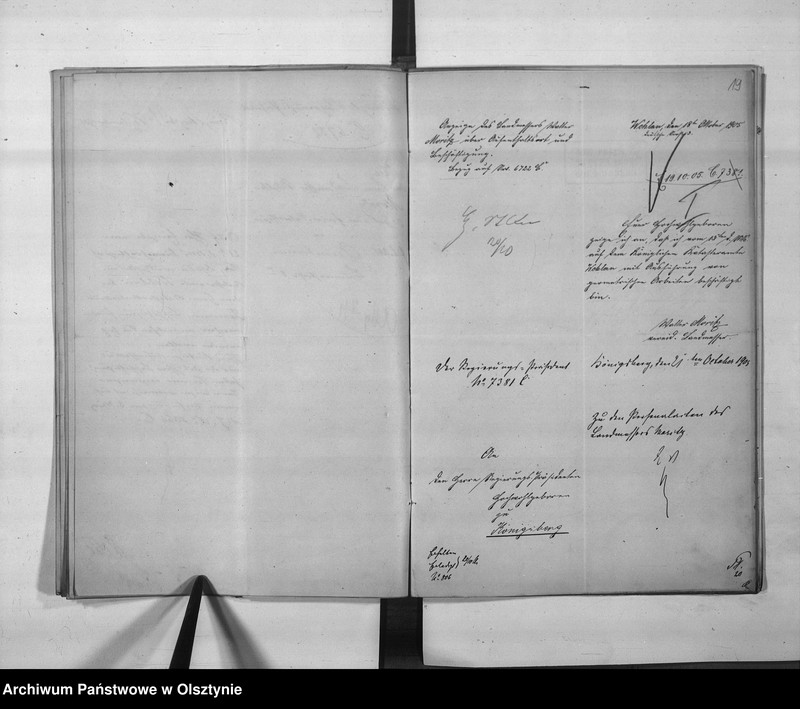 119
Anzeige des Landmessers Walter
Moritz über Aufenthaltsort und
Beschäftigung.
Bezug auf
Wehlau, den 18ten Oktober 1905
19.10.05. C. 7381
Euer Hochwohlgeboren
zeige ich an, daß ich vom
auf dem Königlichen Katasteramte
Wehlau mit Ausführung von
geometrischen Arbeiten beschäftigt
bin.
Walter Moritz
vereid. Landmesser
Der Regierungs-Präsident
No 7381 C
Königsberg, den 21 ten October 1905
Zu den Personalacten des
Landmessers Moritz
An
den Herrn Regierungs-Präsidenten
Hochwohlgeboren
zu
Königsberg
Archiwum Państwowe w Olsztynie